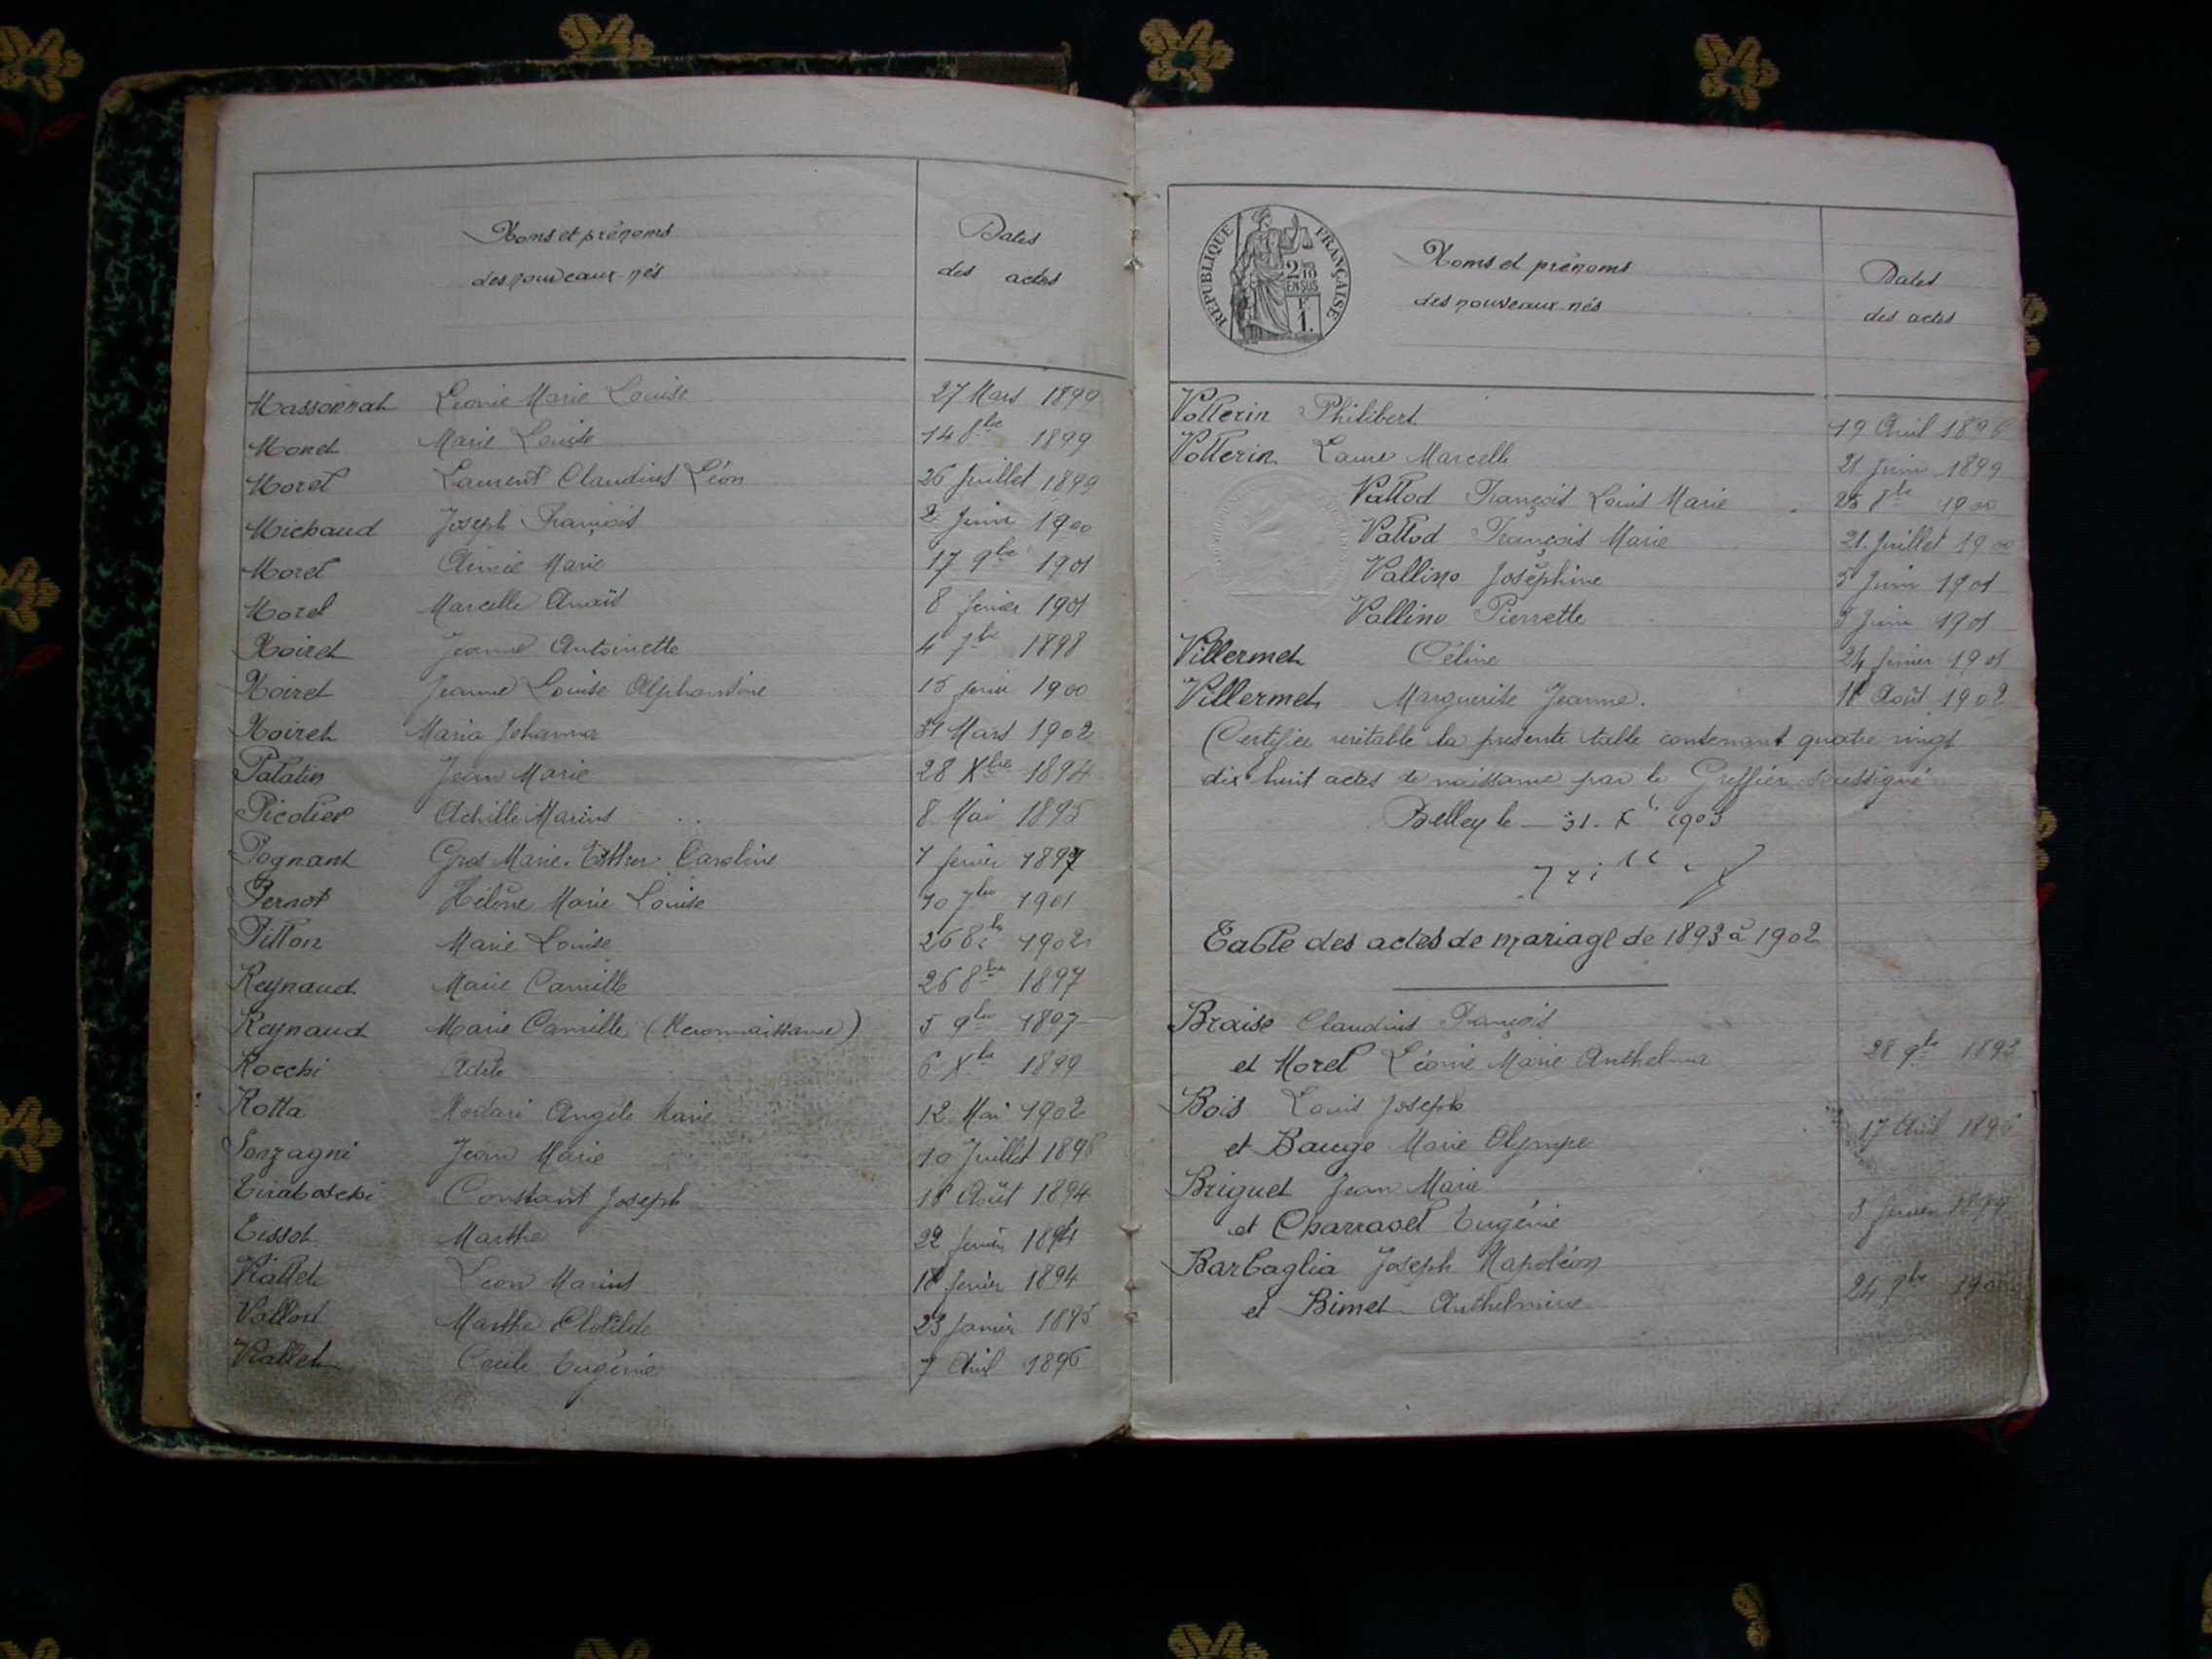 Noms et prénoms
des nouveaux-nés
Dates
des actes
Massonnat Léonie Marie Louise 27 Mars 1899
Monet Marie Louise 14 8bre 1899
Morel Laurent Claudius Léon 26 Juillet 1899
Michaud Joseph François 2 Juin 1900
Morel Aimée Marie 17 9bre 1901
Morel Marcelle Anaïs 8 février 1901
Noiret Jeanne Antoinette 4 7bre 1898
Noiret Jeanne Louise Alphonsine 15 février 1900
Noiret Maria Johanna 31 Mars 1902
Palatin Jean Marie 28 Xbre 1894
Picolier Achille Marius 8 Mai 1895
Pognant Gros Marie Esther Caroline 1 février 1897
Pernot Hélène Marie Louise 10 7bre 1901
Pitton Marie Louise 26 8bre 1902
Reynaud Marie Camille 26 8bre 1897
Reynaud Marie Camille (Reconnaissance) 5 9bre 1897
Rocchi Adèle 6 Xbre 1899
Rotta Modari Angèle Marie 12 Mai 1902
Sonzagni Jean Marie 10 Juillet 1896
Tiraboschi Constant Joseph 18 Août 1894
Tissot Marthe 22 février 1894
Viallet Léon Marius 18 février 1894
Vallod Marthe Clotilde 23 Janvier 1895
Viallet Cécile Eugénie 7 Avril 1896
RÉPUBLIQUE FRANÇAISE
2/10
EN SUS
1F
Noms et prénoms
des nouveaux-nés
Dates
des actes
Volterin Philibert 19 Avril 1896
Volterin Laure Marcelle 21 Juin 1899
Vallod François Louis Marie 25 8bre 1900
Vallod François Marie 21 Juillet 1900
Vallino Joséphine 3 Juin 1901
Vallino Pierrette 3 Juin 1901
Villermet Céline 24 février 1901
Villermet Marguerite Jeanne. 18 Août 1902
Certifiée véritable la présente table contenant quatre vingt
dix huit actes de naissance par le Greffier soussigné
Belley le 31. Xbre 1903
Table des actes de mariage de 1893 à 1902
Braise Claudius François
et Morel Léonie Marie Anthelma 28 9bre 1893
Bois Louis Joseph
et Bauge Marie Olympe 17 Avril 1896
Briguet Jean Marie
et Charravel Eugénie 3 février 1899
Barbaglia Joseph Napoléon
et Bimet Anthelmine 24 9bre